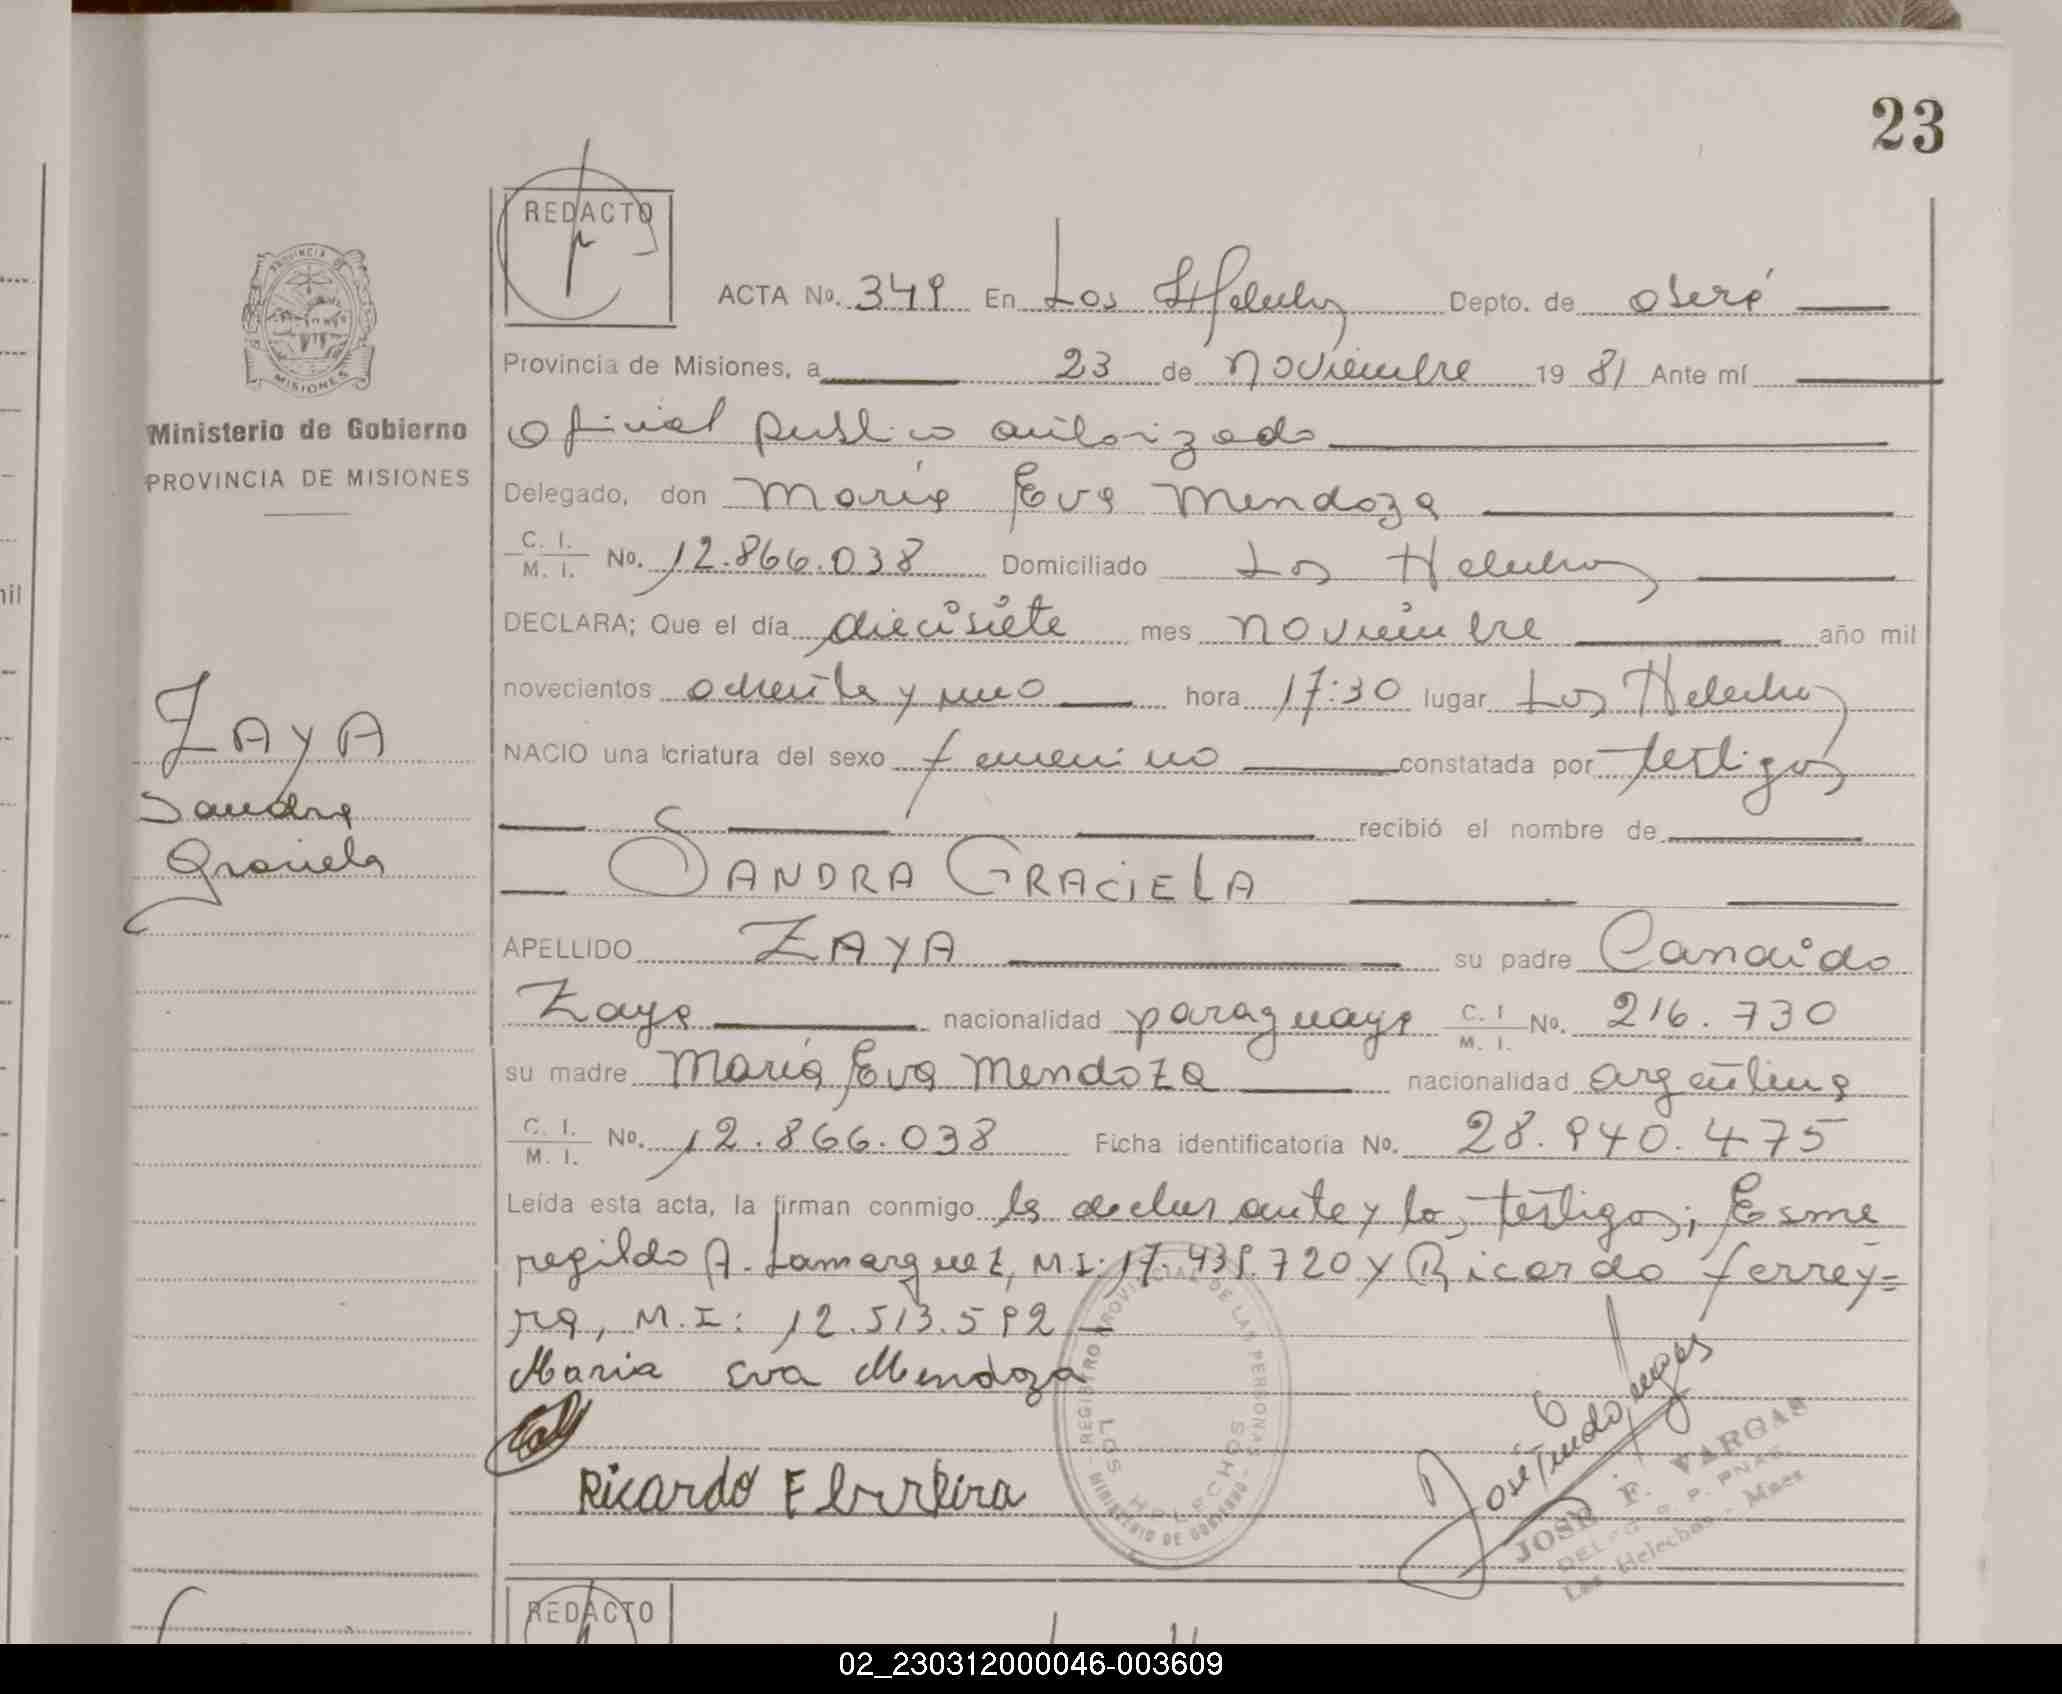 23
REDACTO
ACTA No. 349 En Los Helechos Depto. de oberá
Provincia de Misiones, a 23 de noviembre 19 81 Ante mí
oficial publico autorizado
Delegado, don María Eva Mendoza
C. I.
M. I. No. 12.866.038 Domiciliado Los Helechos
DECLARA; Que el día diecisiete mes noviembre año mil
novecientos ochenta y uno hora 17:30 lugar Los Helechos
NACIO una criatura del sexo femenino constatada por testigos
recibió el nombre de
SANDRA GRACIELA
APELLIDO ZAYA su padre Candido
Zaya nacionalidad paraguaya C. I
M. I. No. 216.730
su madre María Eva Mendoza nacionalidad argentina
C. I.
M. I. No. 12.866.038 Ficha identificatoria No. 28.940.475
Leída esta acta, la firman conmigo la declarante y los testigos; Esme
regildo A. Lamarquez, M.I: 17.439.720 y Ricardo ferrey=
ra, M.I: 12.513.592
Maria Eva Mendoza
Ricardo F
PROVINCIA DE
MISIONES
Ministerio de Gobierno
PROVINCIA DE MISIONES
ZAYA
Sandra
Graciela
REGISTRO PROVINCIAL DE LAS PERSONAS
LOS HELECHOS
MINISTERIO DE GOBIERNO
JOSE F. VARGAS
Los Helechos - Mnes
REDACTO
mil
02_230312000046-003609